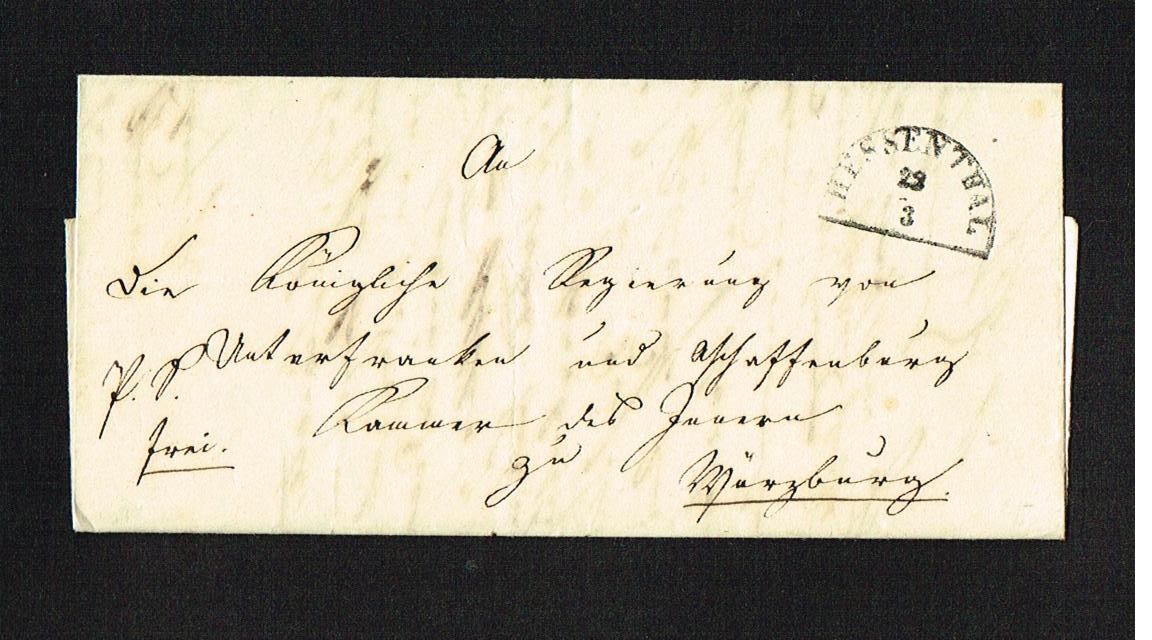 An
HESSENTHAL
22
3
Die Königliche Regierung von
Unterfranken und Aschaffenburg
P. S.
Kammer des Innern
frei.
zu
Würzburg.